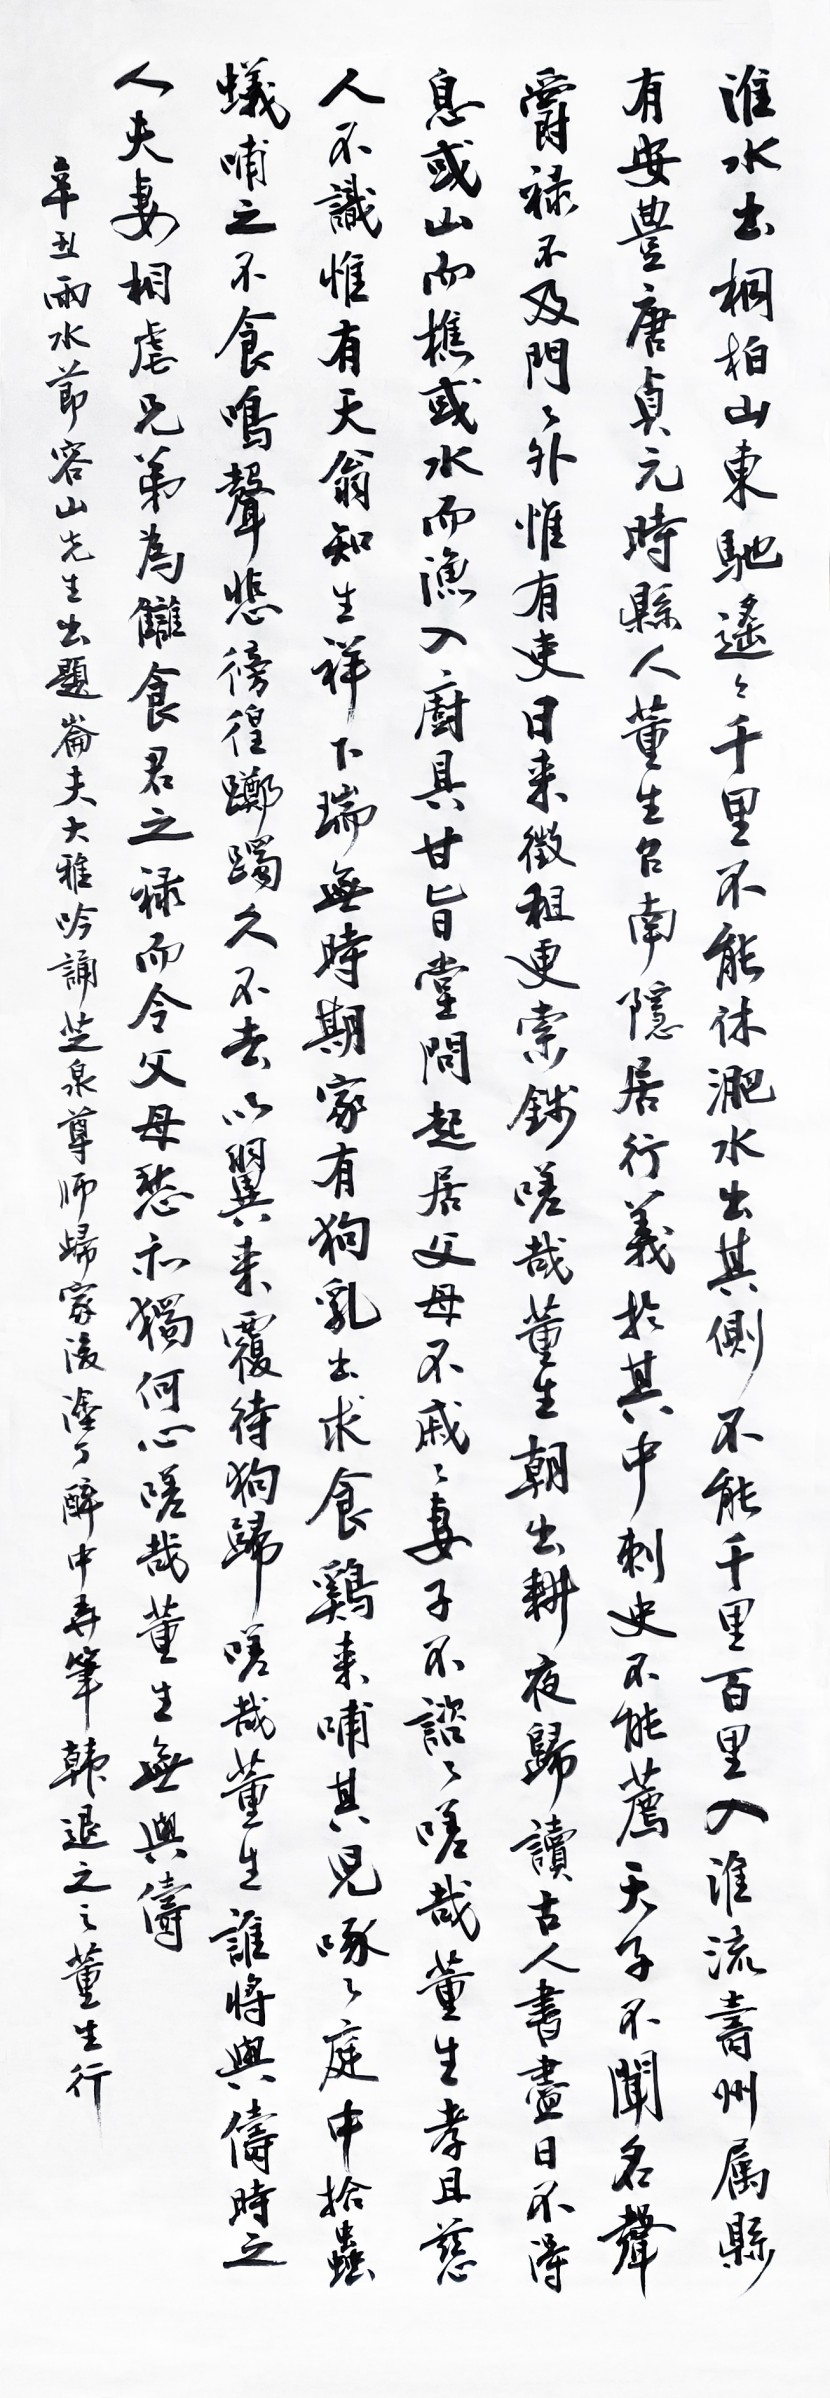 淮水出桐柏山東馳遙々千里不能休淝水出其側不能千里百里入淮流壽州属縣
有安豊唐貞元時縣人董生召南隱居行義於其中刺史不能薦天子不聞名聲
爵祿不及門々外惟有吏日来徵租更索錢嗟哉董生朝出耕夜歸讀古人書盡日不得
息或山而樵或水而漁入廚具甘旨堂問起居父母不戚々妻子不諮々嗟哉董生孝且慈
人不識惟有天翁知生祥下瑞無時期家有狗乳出求食鷄来哺其兒啄々庭中拾蟲
蟻哺之不食鳴聲悲徬徨躑躅久不去以翼来覆待狗歸嗟哉董生誰將與儔時之
人夫妻相虐兄弟為讎食君之祿而令父母愁亦獨何心嗟哉董生無與儔
辛丑雨水節容山先生出題崙夫大雅吟誦芝泉尊師歸家後塗了醉中弄筆韓退之々董生行